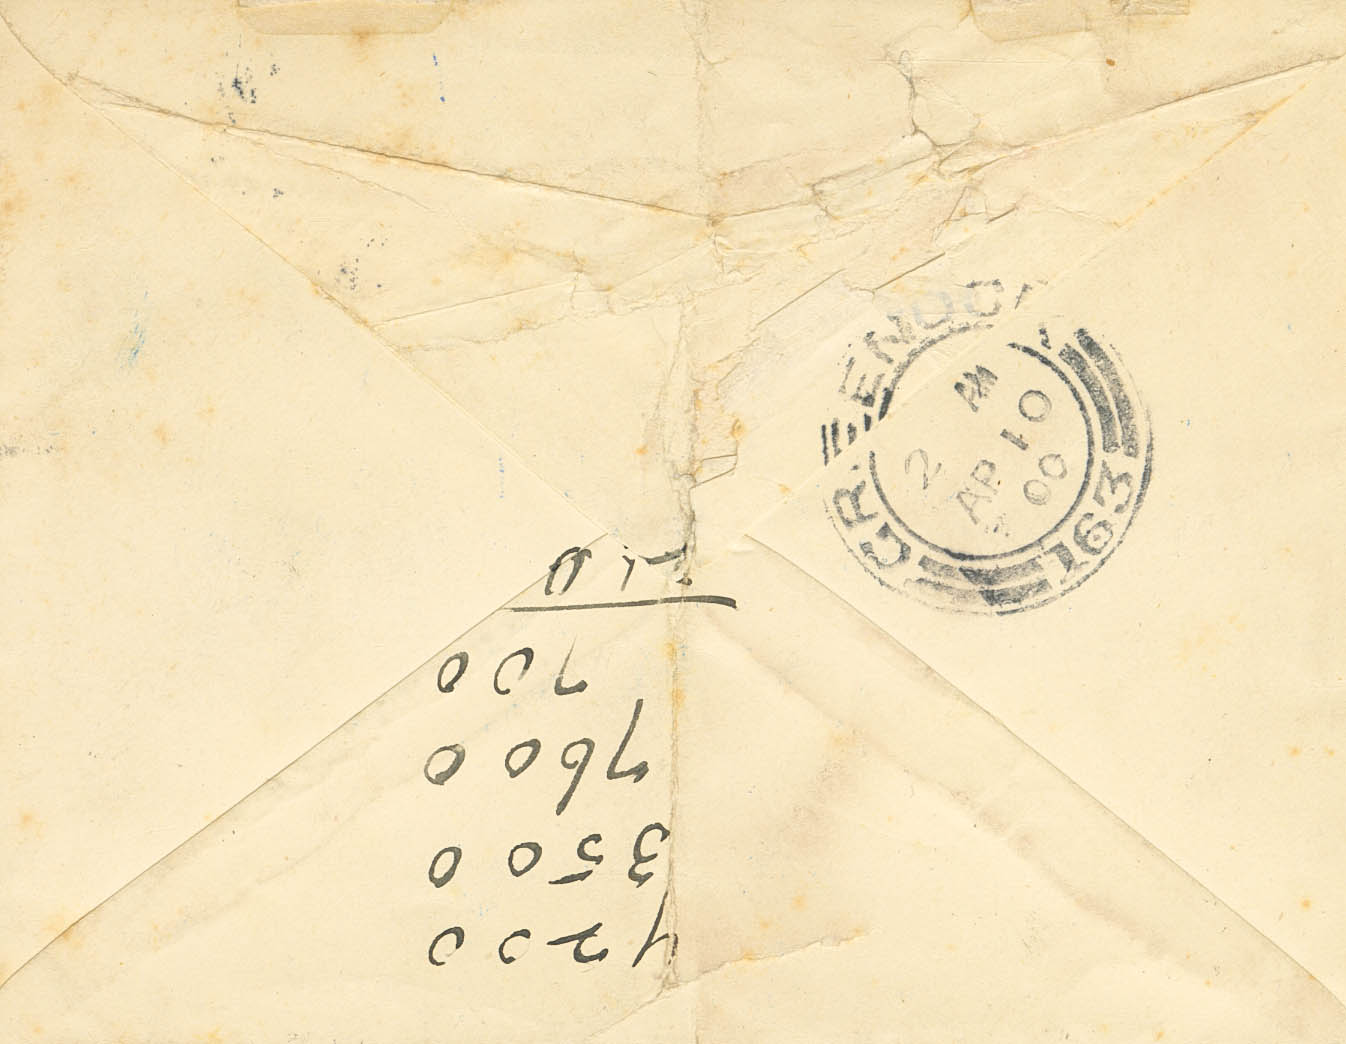 GREENOCK
2 PM
AP 10
00
163
4200
3500
7600
700